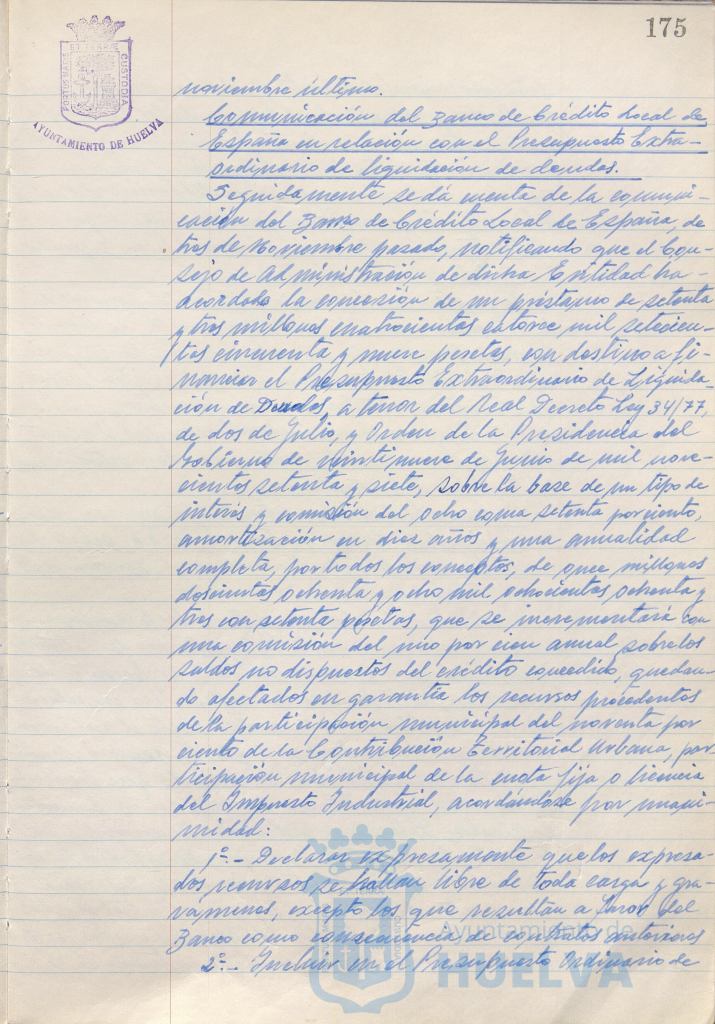 175
PORTUS MARIS ET TERRAE CUSTODIA
AYUNTAMIENTO DE HUELVA
noviembre último.
Comunicación del Banco de Crédito Local de
España en relación con el Presupuesto Extra-
ordinario de liquidación de deudas.
Seguidamente se dá cuenta de la comuni-
cación del Banco de Crédito Local de España, de
tres de Noviembre pasado, notificando que el Con-
sejo de Administración de dicha Entidad ha
acordado la concesión de un préstamo de setenta
y tres millones cuatrocientas catorce mil setecien-
tas cincuenta y nueve pesetas, con destino a fi-
nanciar el Presupuesto Extraordinario de Liquida-
ción de Deudas, a tenor del Real Decreto Ley 34/77,
de dos de Julio, y Orden de la Presidencia del
Gobierno de veintinueve de Junio de mil nove-
cientos setenta y siete, sobre la base de un tipo de
interés y comisión del ocho coma setenta por ciento,
amortización en diez años y una anualidad
completa, por todos los conceptos, de once millones
doscientas ochenta y ocho mil ochocientas ochenta y
tres con setenta pesetas, que se incrementará con
una comisión del uno por cien anual sobre los
saldos no dispuestos del crédito concedido, quedan-
do afectados en garantía los recursos procedentes
de la participación municipal del noventa por
ciento de la Contribución Territorial Urbana, par-
ticipación municipal de la cuota fija o licencia
del Impuesto Industrial, acordándose por unani-
midad:
1º.- Declarar expresamente que los expresa-
dos recursos se hallan libre de toda carga y gra-
vamenes, excepto los que resultan a favor del
Banco como consecuencia de contratos anteriores
2º.- Incluir en el Presupuesto Ordinario de
Ayuntamiento de
HUELVA